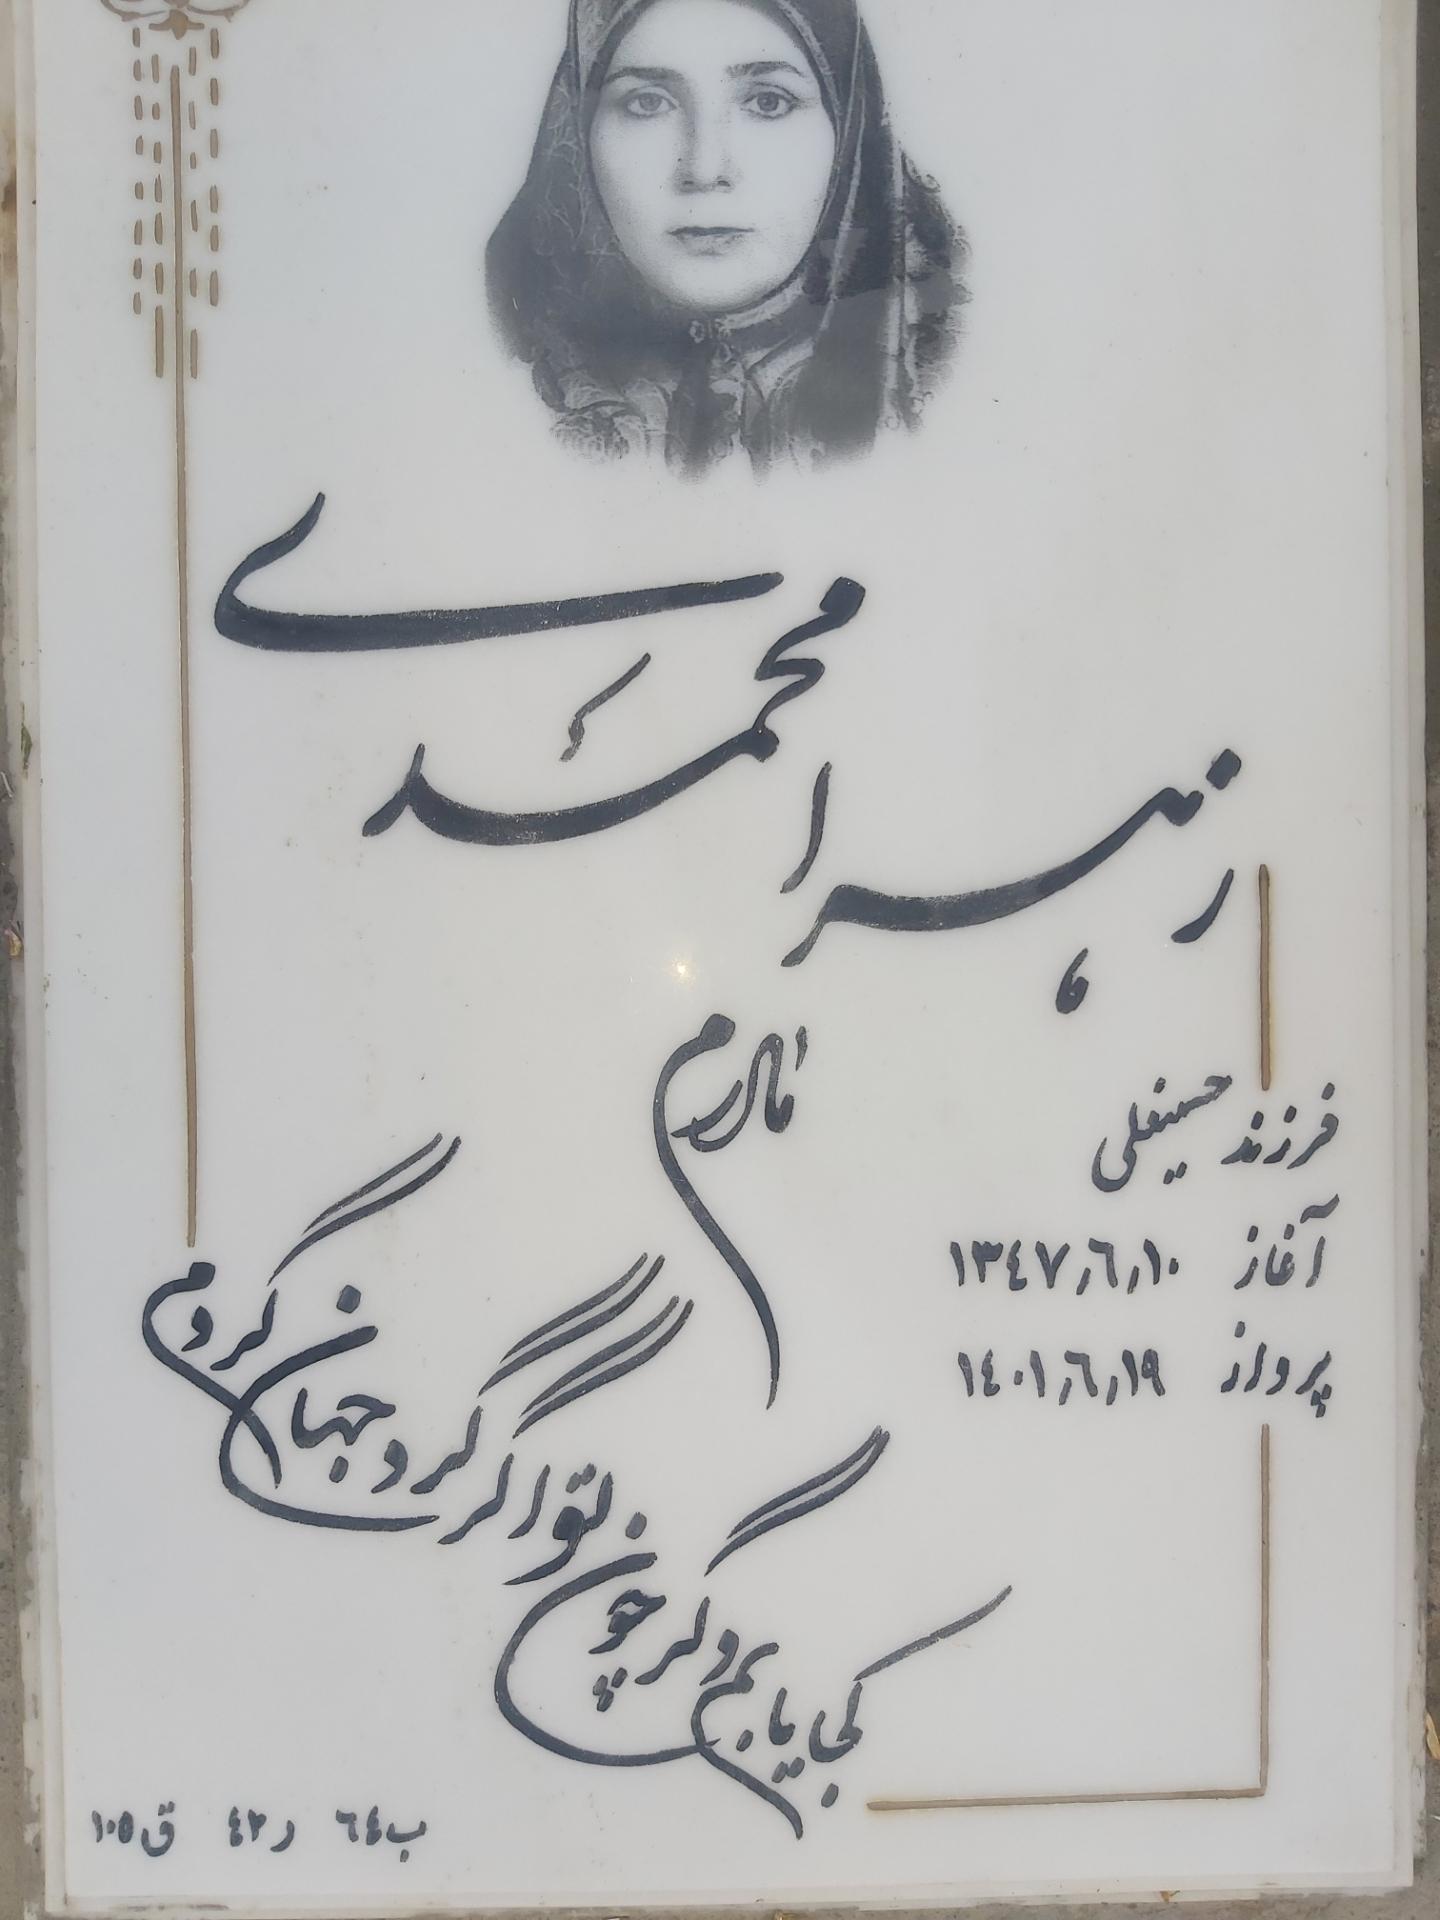 زهرا محمدی
مادرم
فرزند حسینعلی
آغاز ۱۳۴۷٫۶٫۱۰
پرواز ۱۴۰۱٫۶٫۱۹
کجا یابم دگر چون تو اگر گرد جهان گردم
ب ۶۴ ر ۴۲ ق ۱۰۵